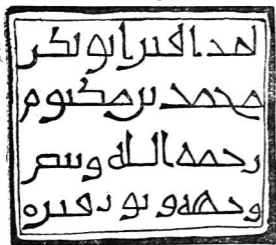 هدا قبر ابو بكر
محمد بن مكتوم
رحمه الله ونضر
وجهه ونور قبره